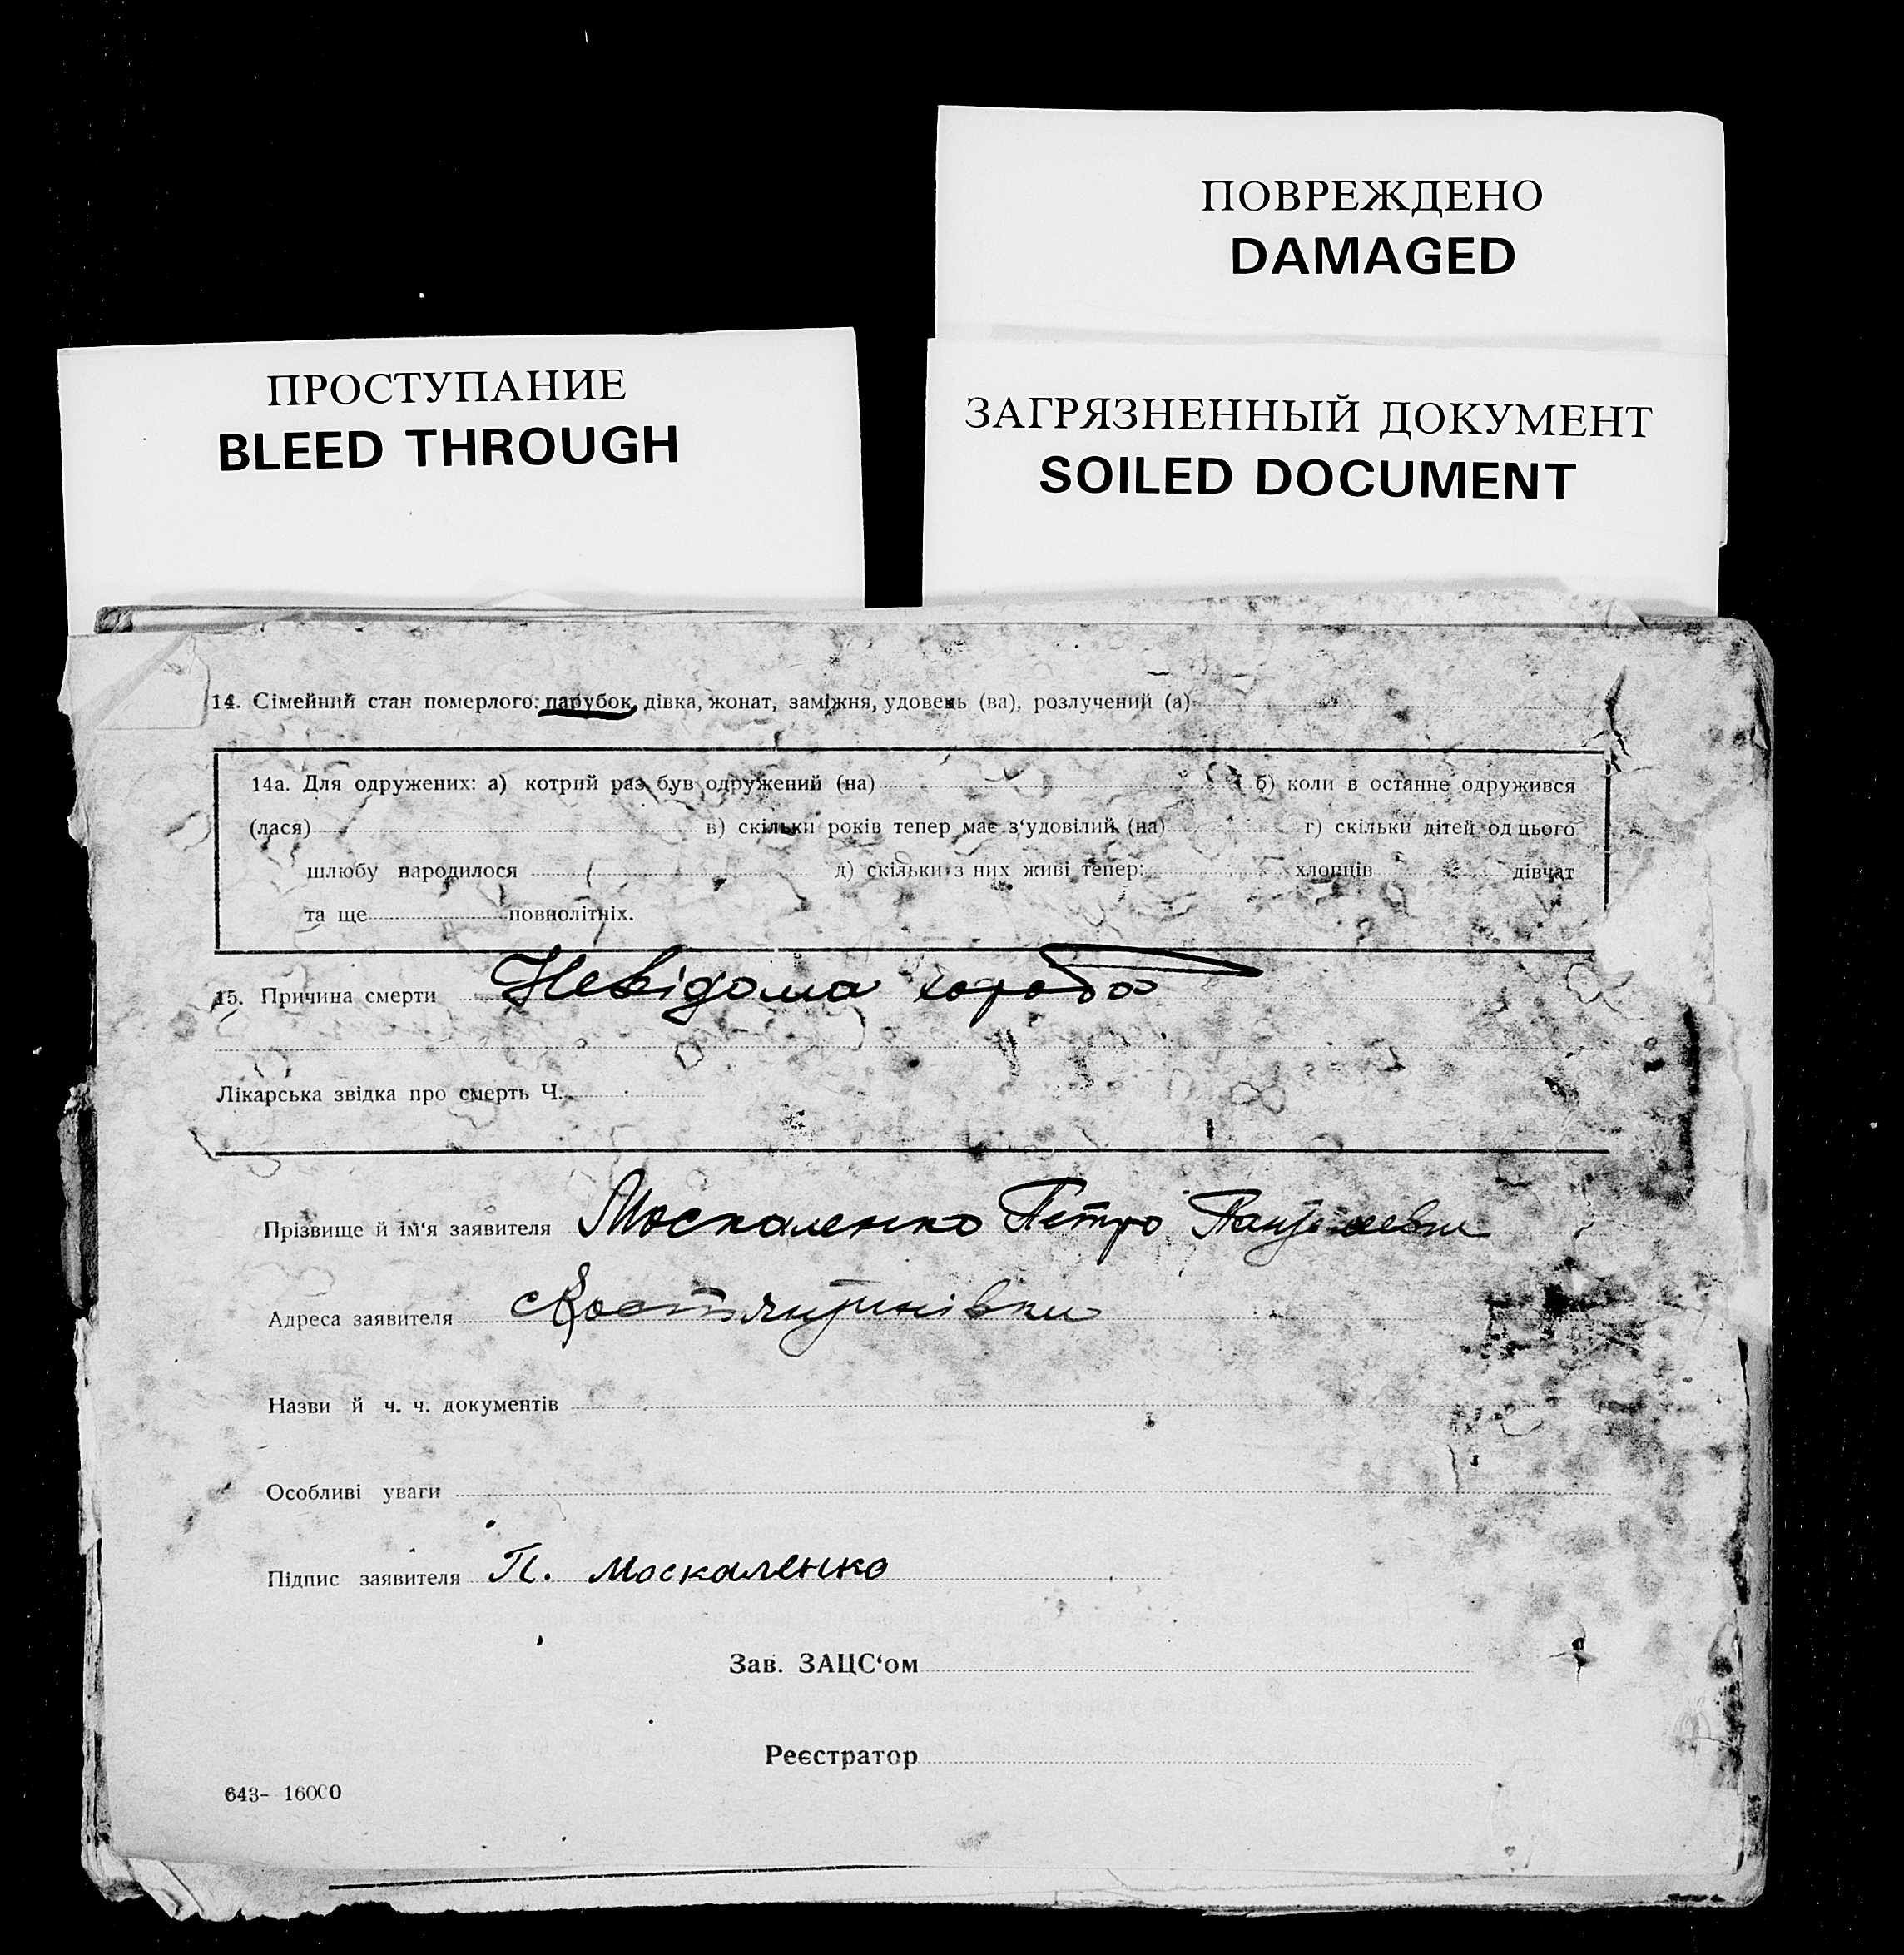 ПОВРЕЖДЕНО
DAMAGED
ПРОСТУПАНИЕ
BLEED THROUGH
ЗАГРЯЗНЕННЫЙ ДОКУМЕНТ
SOILED DOCUMENT
14. Сімейний стан померлого: парубок, дівка, жонат, заміжня, удовець (ва), розлучений (а)
14а. Для одружених: а) котрий раз був одружений (на) б) коли в останнє одружився
(лася) в) скільки років тепер має з'удовілий (на) г) скільки дітей од цього
шлюбу народилося д) скільки з них живі тепер: хлопців дівчат
та ще повнолітніх.
15. Причина смерти Невідома хороба
Лікарська звідка про смерть Ч.
Прізвище й ім'я заявителя Москаленко Петро
Адреса заявителя
Назви й ч. ч. документів
Особливі уваги
Підпис заявителя П. Москаленко
Зав. ЗАЦС'ом
Реєстратор
643- 16000